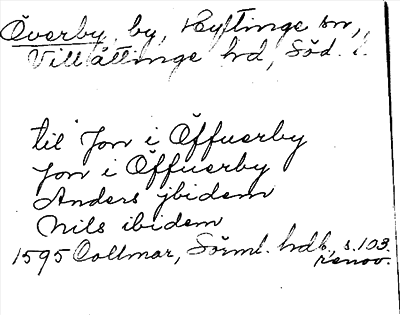 Överby, by, Flyttinge sn,
Villåttinge hd, Söd. l.
til Jon i Öffuerby
Jon i Öffuerby
Anders jbidem
Nils ibidem
1595 Collmar, Sörml. hdl., s.103.
renov.